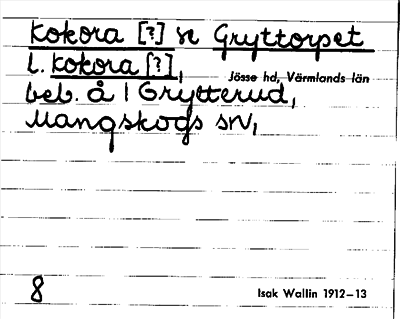 Kokora [?] se Gryttorpet
l. Kokora [?],
Jösse hd, Värmlands län
beb. å 1 Grytterud,
Mangskogs sn,
8
Isak Wallin 1912–13